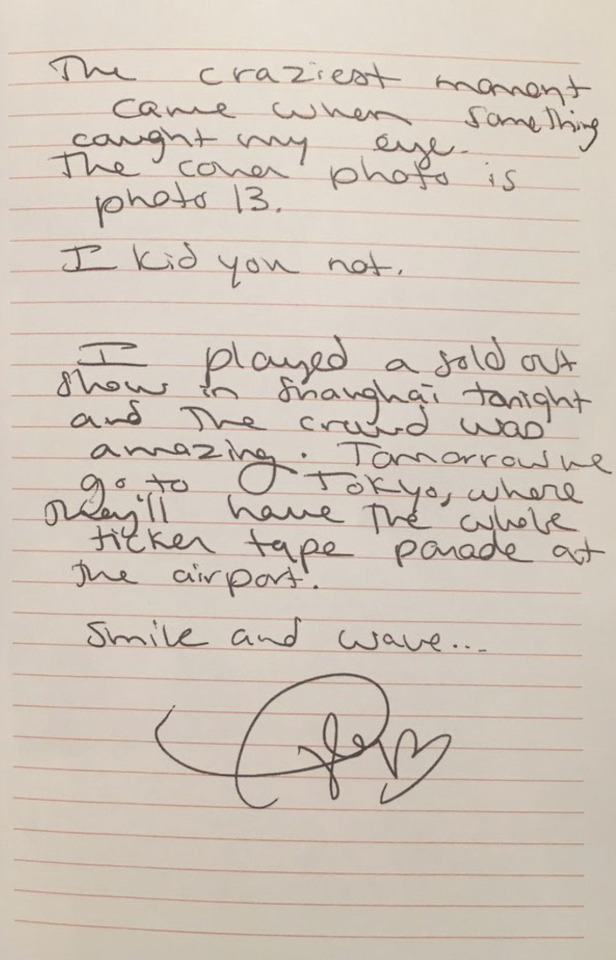 The craziest moment
came when something
caught my eye.
The cover photo is
photo 13.
I kid you not.
I played a sold out
show in Shanghai tonight
and the crowd was
amazing. Tomorrow we
go to Tokyo, where
they'll have the whole
ticker tape parade at
the airport.
Smile and wave...